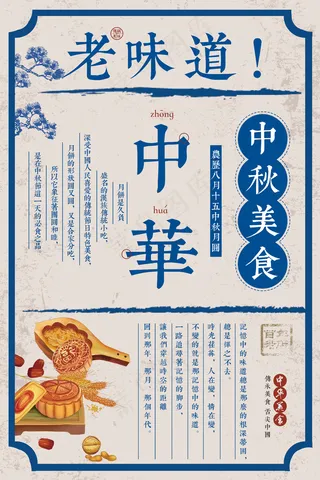 老味道！
中秋美食
農歷八月十五中秋月圓
zhōng
中
huá
華
月餅是久負
盛名的漢族傳統小吃，
深受中國人民喜愛的傳統節日特色美食。
月餅的形狀圓又圓，又是合家分吃，
所以它象征著團圓和睦，
是在中秋節這一天的必食之品
記憶中的味道總是那麼的根深蒂固，
總是揮之不去。
時光荏苒，人在變，情在變，
不變的就是那記憶中的味道。
一路追尋著記憶的腳步，
讓我們穿越時空的距離
回到那年，那月，那個年代。
中华美食
傳承美食 舌尖中國